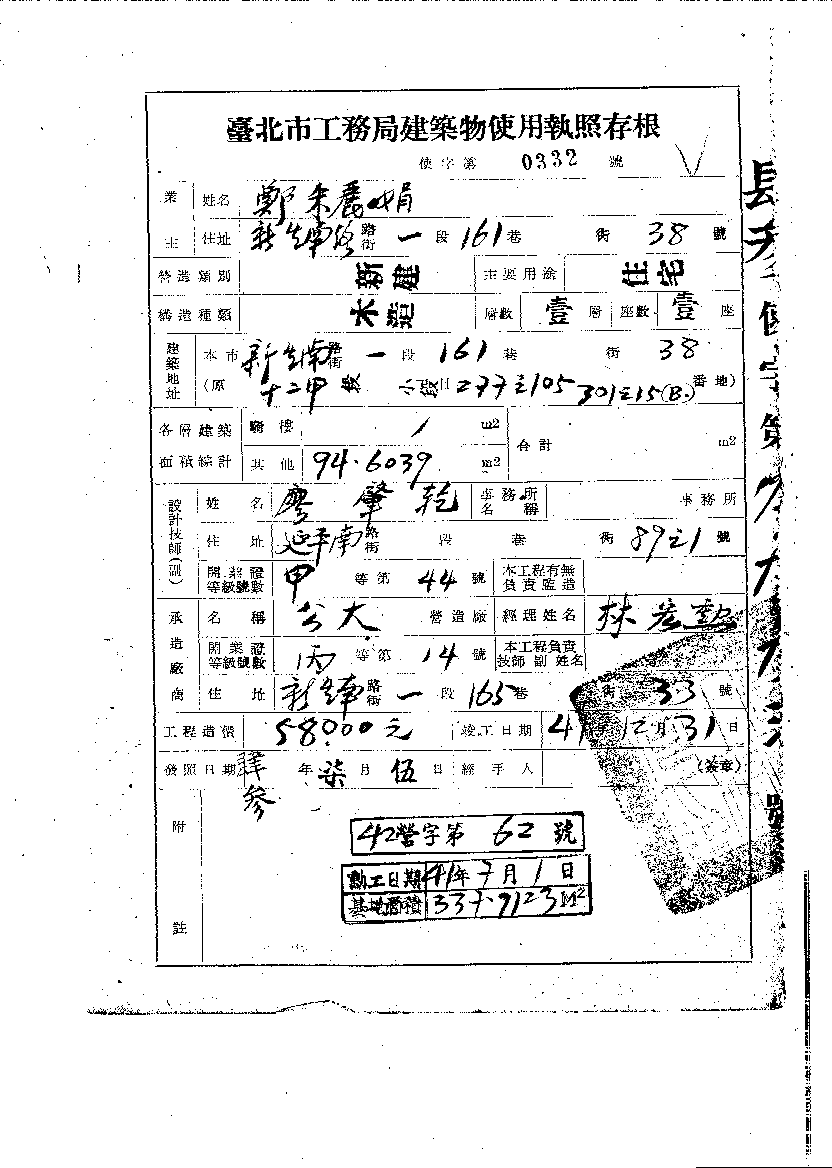 臺北市工務局建築物使用執照存根
使字第 0332 號
業主 姓名 鄭朱麗娟
住址 新生南路街 一段 161巷 街 38 號
營造類別 新建 主要用途 住宅
構造種類 木造 層數 壹層 座數 壹座
建築地址 本市 新生南路街 一段 161巷 街 38
(原 十二甲段 小段 277之105 301之15(B.) 番地)
各層建築面積綜計 騎樓 / m2 合計 m2
其他 94.6039 m2
設計技師(副) 姓名 廖肇乾 事務所名稱 事務所
住址 延平南路街 段 巷 街 89之1 號
開業證等級號數 甲等第 44 號 本工程有無負責監造
承造廠商 名稱 公大 營造廠 經理姓名 林
開業證等級號數 丙等第 14 號 本工程負責技師副姓名
住址 新生南路街 一段 165巷 街 33 號
工程造價 58000元 竣工日期 41 12月31日
發照日期 肆參年柒月伍日 經手人 (簽章)
附註
42營字第 62 號
動工日期 41年7月1日
基地面積 337.9123M2